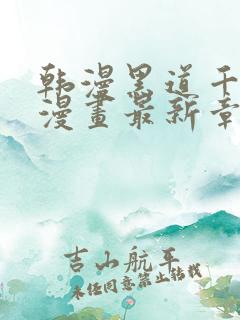 韩漫黑道千
漫畫最新章
吉山航平
未经同意禁止转载